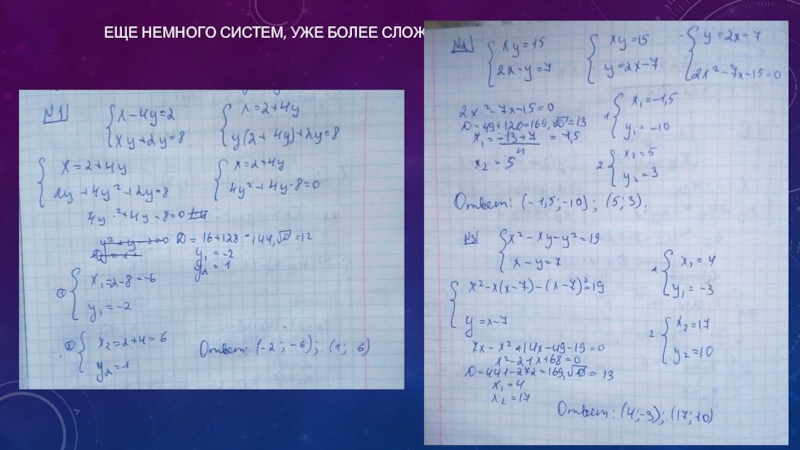 ЕЩЕ НЕМНОГО СИСТЕМ, УЖЕ БОЛЕЕ СЛОЖ
N1
{ x-4y=2
xy+2y=8
{ x=2+4y
y(2+4y)+2y=8
{ x=2+4y
2y+4y²+2y=8
{ x=2+4y
4y²+4y-8=0
4y²+4y-8=0
D=16+128=144, √D=12
y₁=-2
y₂=1
① { x₁=2-8=-6
y₁=-2
② { x₂=2+4=6
y₂=1
Ответ: (-2; -6); (1; 6)
N2
{ xy=15
2x-y=7
{ xy=15
y=2x-7
{ y=2x-7
2x²-7x-15=0
2x²-7x-15=0
D=49+120=169, √D=13
x₁=-13+7/4=-1,5
x₂=5
1 { x₁=-1,5
y₁=-10
2 { x₂=5
y₂=3
Ответ: (-1,5;-10); (5;3).
N3
{ x²-xy-y²=19
x-y=7
{ x²-x(x-7)-(x-7)²=19
y=x-7
7x-x²+14x-49-19=0
x²-21x+68=0
D=441-272=169, √D=13
x₁=4
x₂=17
1 { x₁=4
y₁=-3
2 { x₂=17
y₂=10
Ответ: (4;-3); (17;10)